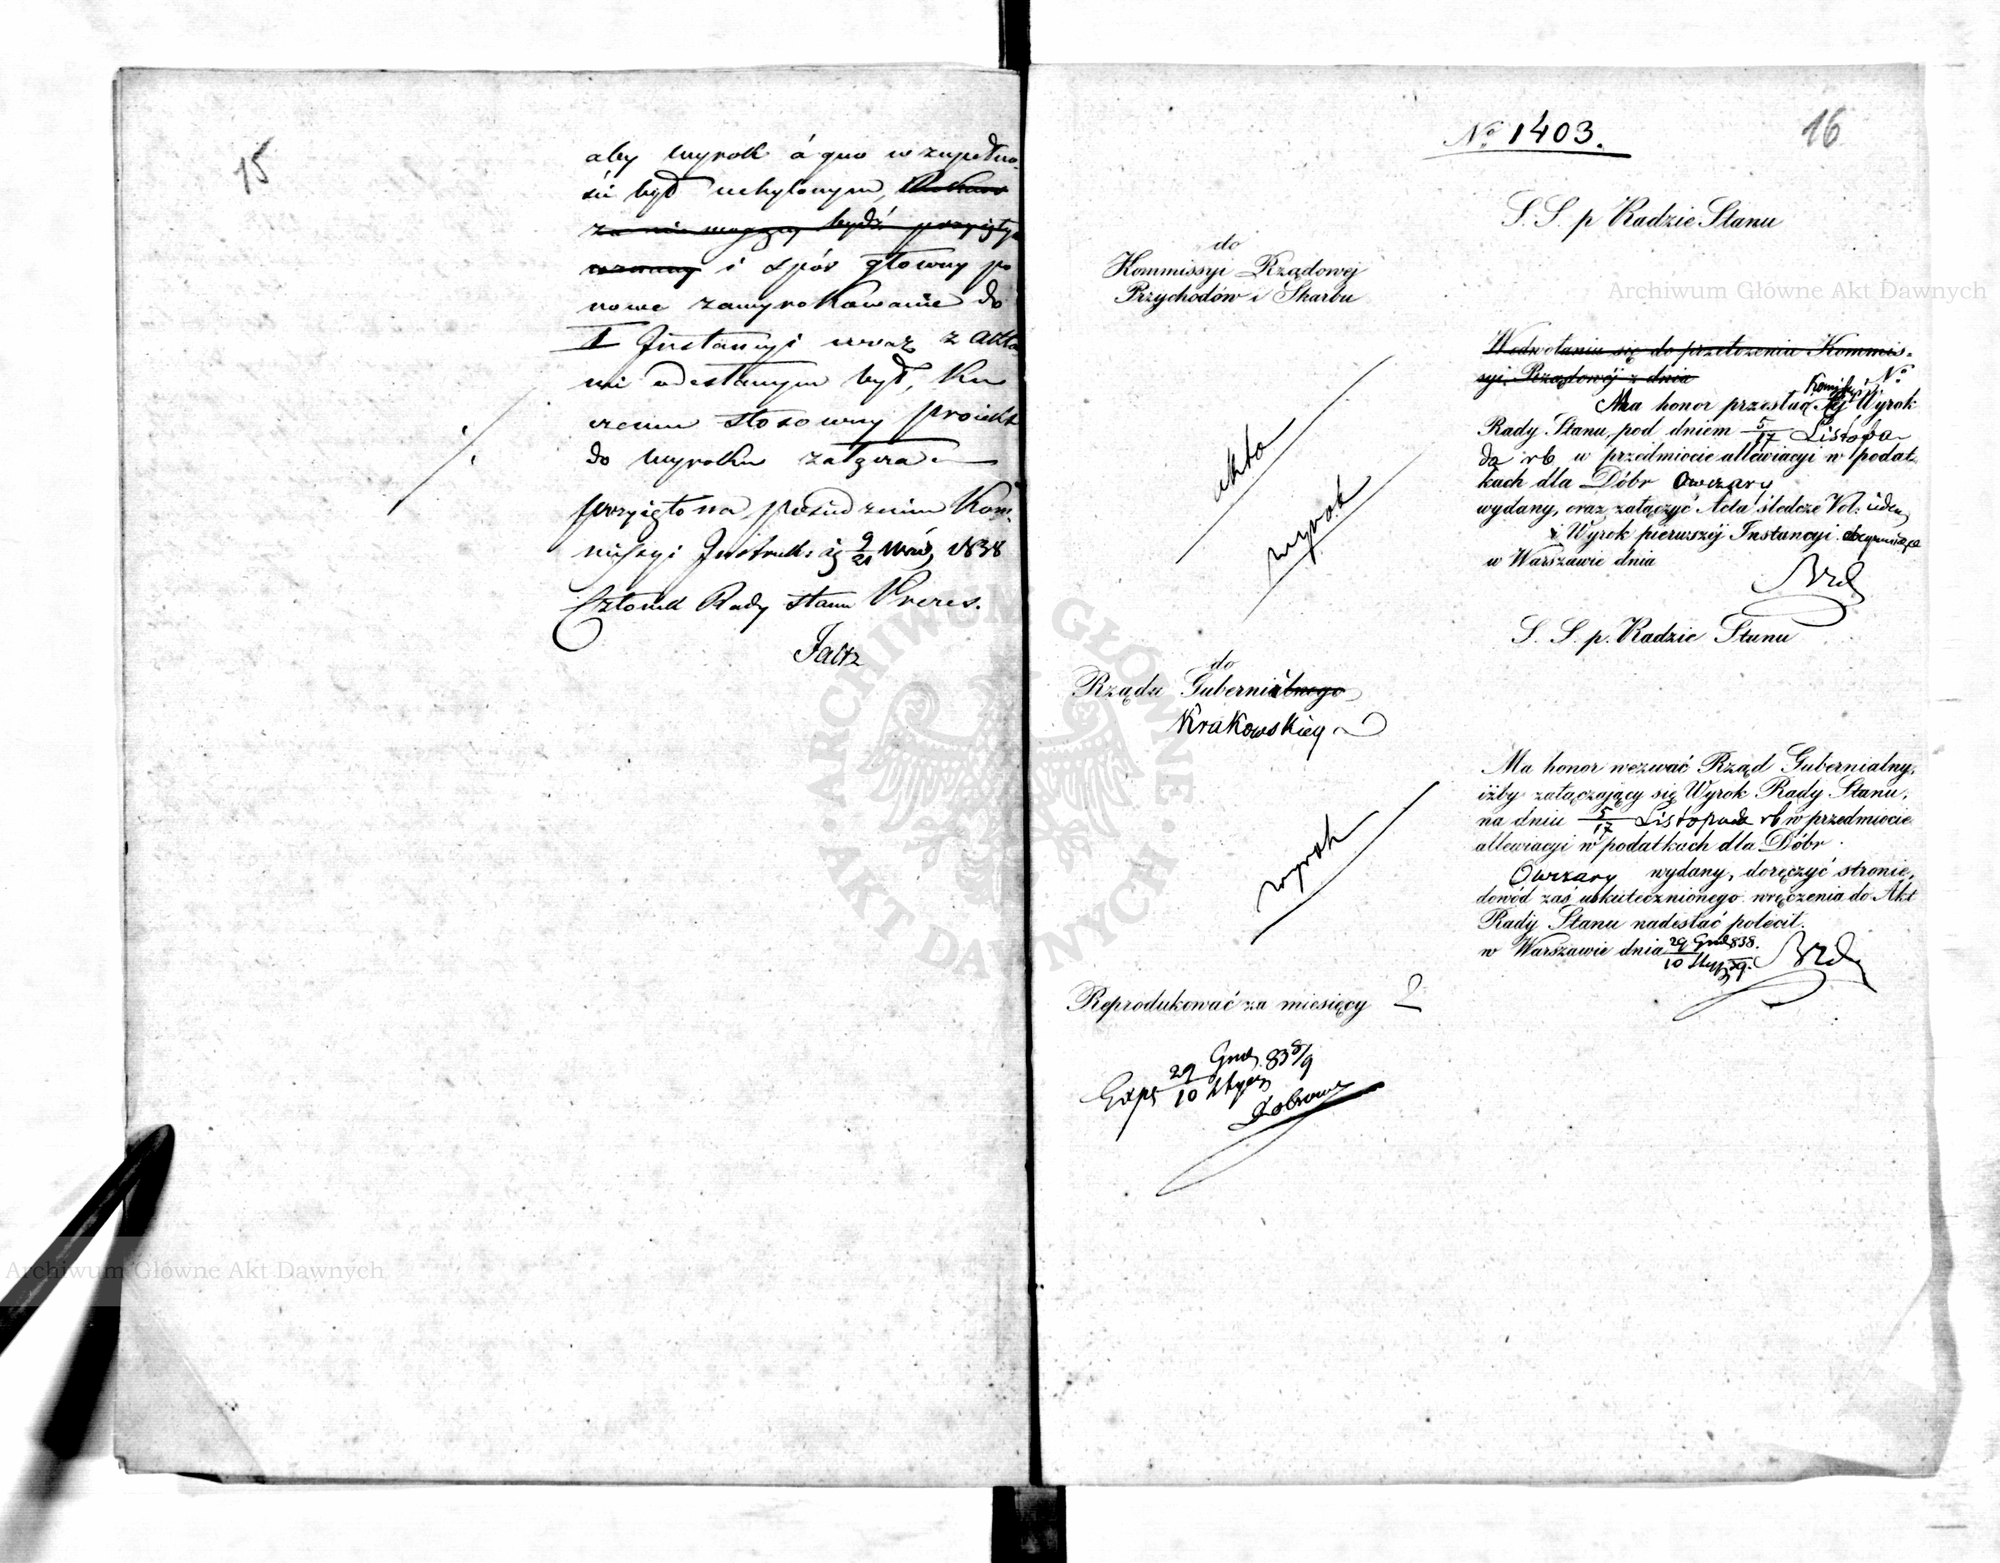 15
aby wyrok á quo w zupełno-
ści był uchylonym,
za nie mogący bydź przyięty
i spór główny po
nowe zawyrokowanie do
I Instancyi wraz z akta
mi odesłanym był, Ku
czemu stosowny projekt
do wyroku załącza
przyięto na posiedzeniu Kom-
missyi Instruk: 9/21 Wrześ, 1838
Członek Rady Stanu Prezes.
Faltz
No 1403.
16
S. S. p Radzie Stanu
do
Kommissyi Rządowej
Przychodów i Skarbu
W odwołaniu się do przełożenia Kommis-
syi Rządowéj z dnia No
Ma honor przesłać Kommissyi Jéj Wyrok
Rady Stanu, pod dniem 5/17 Listopa-
da rb w przedmiocie allewiacyi w podat-
kach dla Dóbr Owczary
wydany, oraz załączyć Acta śledcze Vol:
i Wyrok pierwszéj Instancyi obeymujące
w Warszawie dnia
akta
wyrok
S. S. p. Radzie Stanu
do
Rządu Gubernialnego
Krakowskiego
Ma honor wezwać Rząd Gubernialny,
iżby załączający się Wyrok Rady Stanu,
na dniu 5/17 Listopada rb w przedmiocie
allewiacyi w podatkach dla Dóbr
Owczary wydany, doręczyć stronie,
dowód zaś uskutecznionego wręczenia do Akt
Rady Stanu nadesłać polécił.
w Warszawie dnia 29 Grud 838.
10 Stycz 39.
wyrok
Reprodukować za miesięcy 2
Exp. 29 Grud. 838/9
10 Stycz
Archiwum Główne Akt Dawnych
Archiwum Główne Akt Dawnych
ARCHIWUM GŁÓWNE AKT DAWNYCH